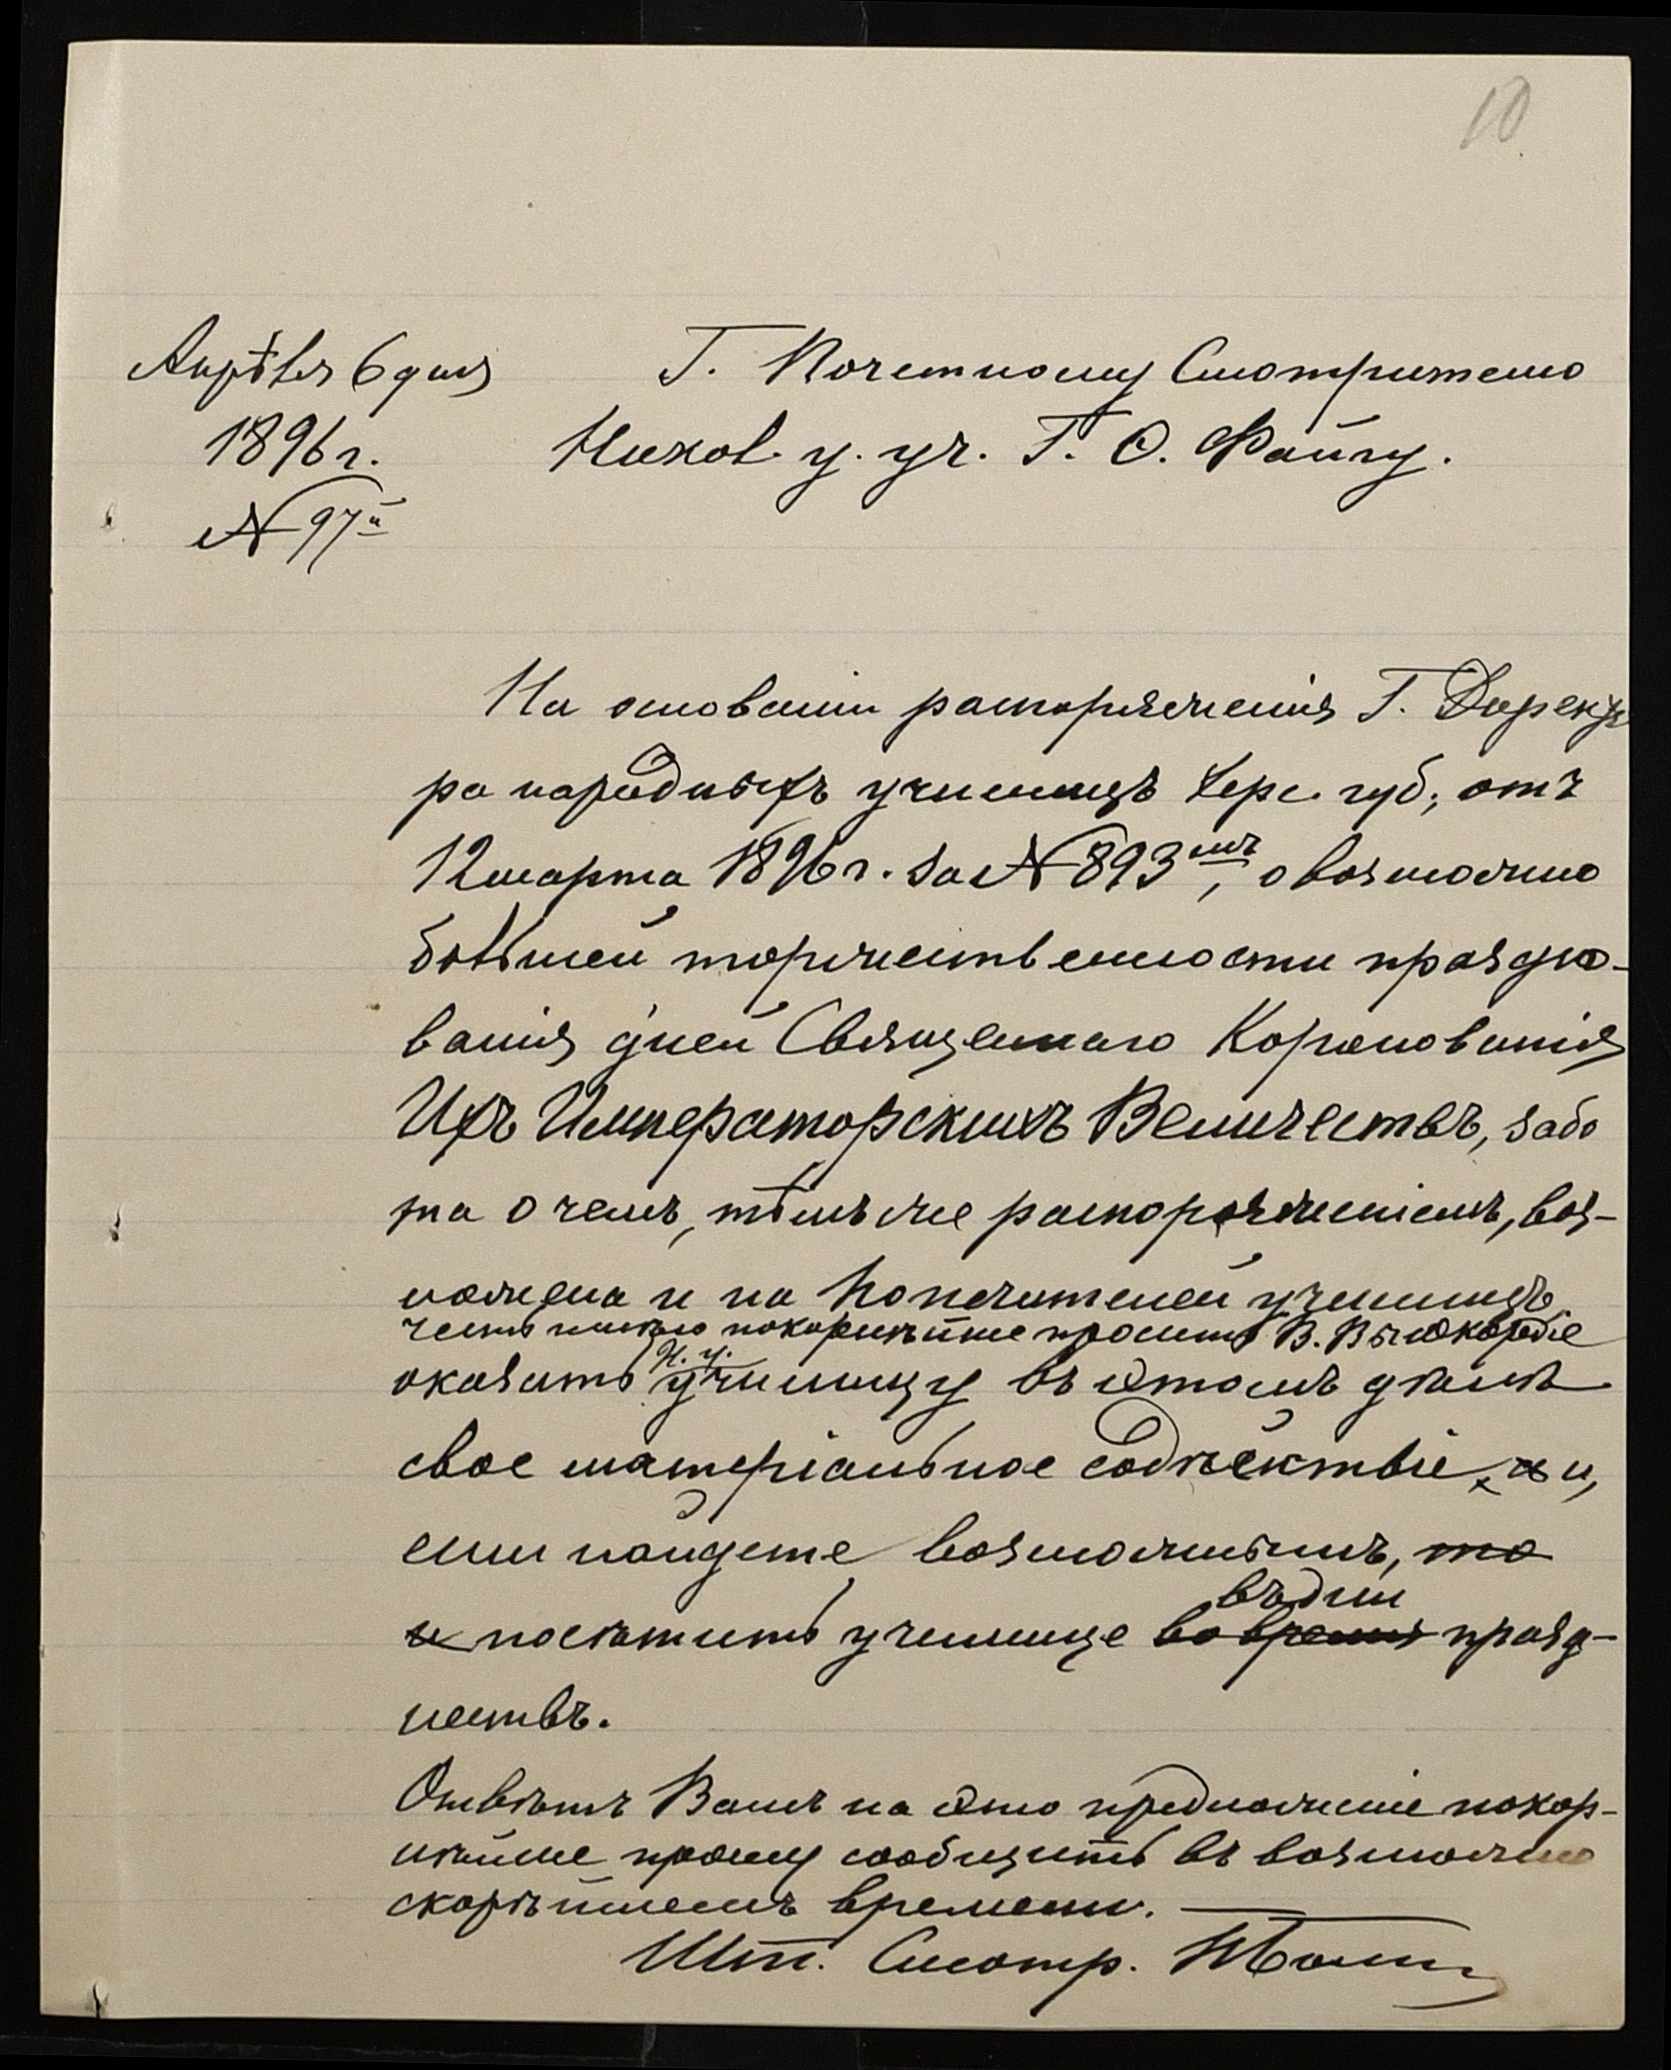 10
Апрѣля 6 дня
1896 г.
№ 97й
Г. Почетному Смотрителю
Никол. у. уч. Г. О. Файгу.
На основаніи распоряженія Г. Директо
ра народныхъ училищъ Херс. губ., отъ
12 марта 1896 г. за № 893мъ, о возможно
большей торжественности праздно-
ванія дней Священнаго Коронованія
Ихъ Императорскихъ Величествъ, забо
та о чемъ, тѣмъ же распоряженіемъ, воз-
ложена и на Попечителей училищъ,
честь имѣю покорнѣйше просить В. Высокородіе
оказать Н. у. училищу въ этомъ дѣлѣ
свое матеріальное содѣйствіе, и и,
если найдете возможнымъ, то
въ дни
и посѣтить училище во время празд-
нествъ.
Отвѣтъ Вашъ на это предложеніе покор-
нѣйше прошу сообщить въ возможно
скорѣйшемъ времени. —
Шт. Смотр.